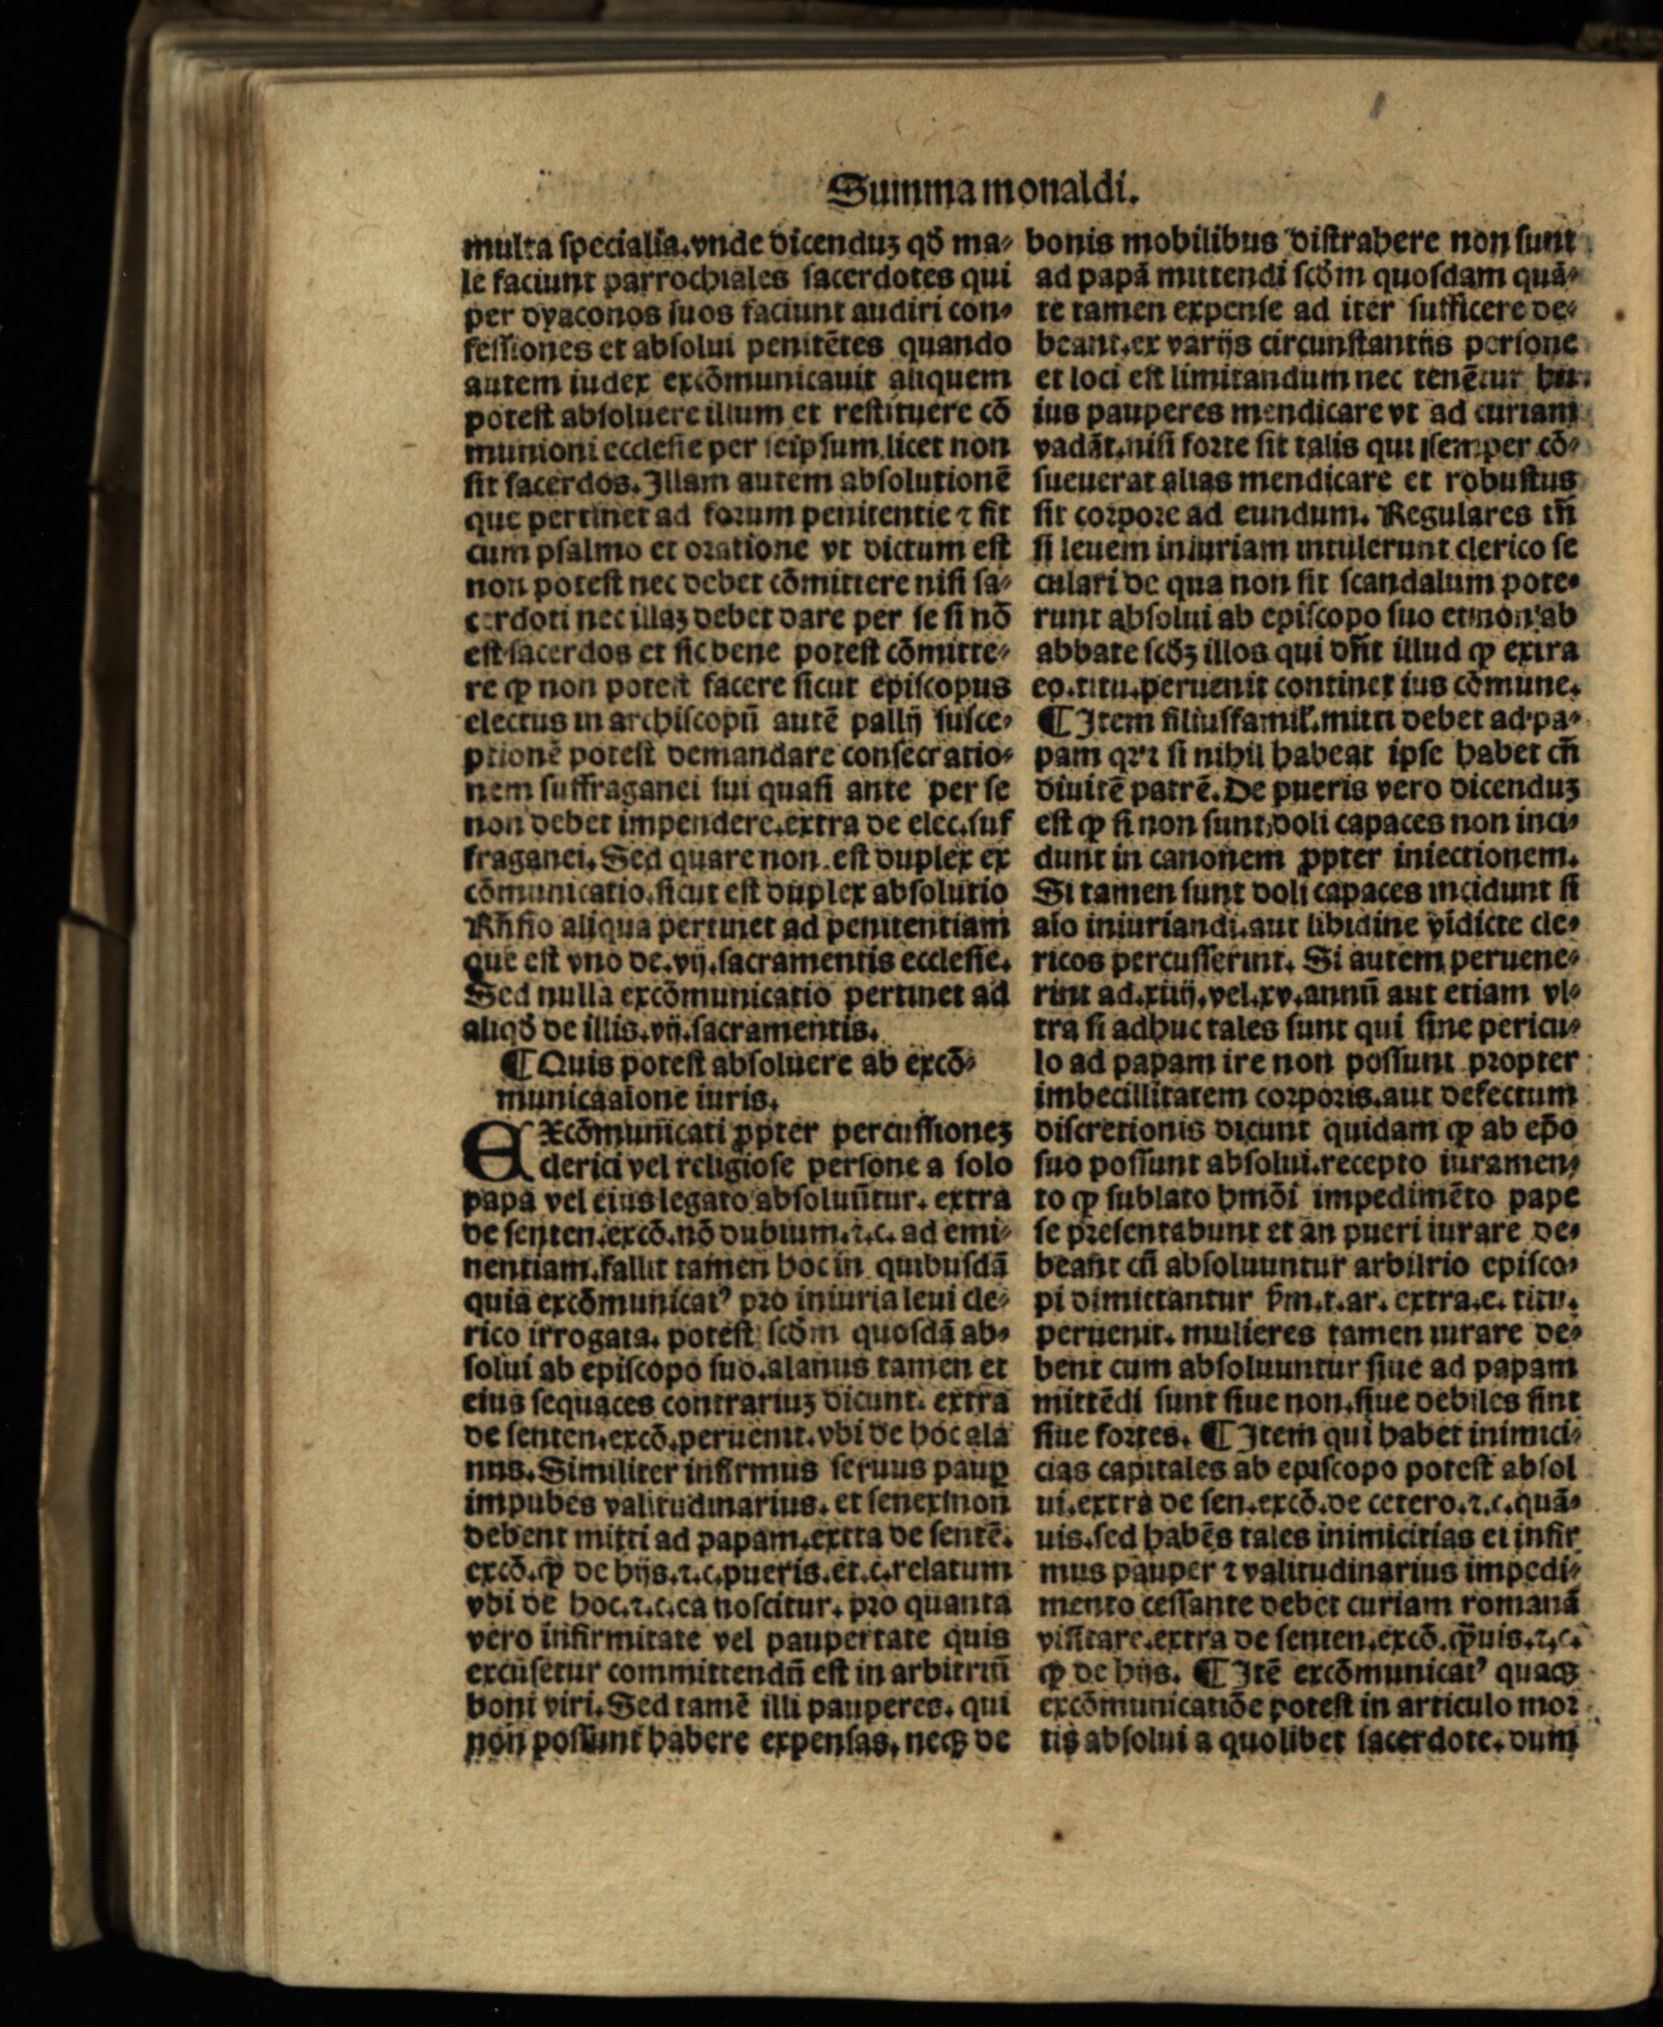 Summa monaldi.
multa specialia.vnde dicenduʒ qď ma⸗
le faciunt parrochiales sacerdotes qui
per dyaconos suos faciunt audiri con⸗
fessiones et absolui penitētes quando
autem iudex excōmunicauit aliquem
potest absoluere illum et restituere cō
munioni ecclesie per seipsum.licet non
sit sacerdos.Illam autem absolutionē
que pertinet ad forum penitentie ⁊ fit
cum psalmo et oratione vt dictum est
non potest nec debet cōmittere nisi sa⸗
cerdoti nec illaʒ debet dare per se si nō
est sacerdos et sic bene potest cōmitte⸗
re ꝙ non potest facere sicut episcopus
electus in archiscopū autē pallij susce⸗
ptionē potest demandare consecratio⸗
nem suffraganei sui quasi ante per se
non debet impendere.extra de elec.suf
fraganei.Sed quare non est duplex ex
cōmunicatio.sicut est duplex absolutio
Rn̄sio aliqua pertinet ad penitentiam
que est vno de.vij.sacramentis ecclesie.
Sed nulla excōmunicatio pertinet ad
aliqď de illis.vij.sacramentis.
¶Quis potest absoluere ab excō⸗
municaaione iuris.
EXcōmunicati ꝓpter percussioneʒ
clerici vel religiose persone a solo
papa vel eius legato absoluūtur. extra
de senten.excō.nō dubium.⁊.c. ad emi⸗
nentiam.fallit tamen hoc in quibusdā
quia excōmunicatꝰ pro iniuria leui cle⸗
rico irrogata. potest scōm quosdā ab⸗
solui ab episcopo suo.alanus tamen et
eius sequaces contrariuʒ dicunt. extra
de senten.excō.peruenit.vbi de hoc ala
nus.Similiter infirmus seruus paup̱
impubes valitudinarius. et senex non
debent mitti ad papam.extta de sentē.
excō.ꝙ de hijs.⁊.c.pueris.et.c.relatum
vbi de hoc.⁊.c.ea noscitur. pro quanta
vero infirmitate vel paupertate quis
excusetur committendū est in arbitriū
boni viri.Sed tamē illi pauperes. qui
non possunt habere expensas. neqꝫ de
bonis mobilibus distrahere non sunt
ad papā mittendi scōm quosdam quā⸗
te tamen expense ad iter sufficere de⸗
beant.ex varijs circunstantijs persone
et loci est limitandum nec tenētur hu⸗
ius pauperes mendicare vt ad curiam
vadāt.nisi forte sit talis qui semper cō⸗
sueuerat alias mendicare et robustus
sit corpore ad eundum. Regulares tn̄
si leuem iniuriam intulerunt clerico se
culari de qua non sit scandalum pote⸗
runt absolui ab episcopo suo et non ab
abbate scďʒ illos qui dn̄t illud ꝙ extra
eo.titu.peruenit continet ius cōmune.
¶Item filiusfamil'.mitti debet ad pa⸗
pam si nihil habeat ipse habet cn̄
diuitē patrē.De pueris vero dicenduʒ
est ꝙ si non sunt doli capaces non inci⸗
dunt in canonem ꝓpter iniectionem.
Si tamen sunt doli capaces incidunt si
aīo iniuriandi.aut libidine vīdicte cle⸗
ricos percusserint. Si autem peruene⸗
rint ad.xiiij.vel.xv.annū aut etiam vl⸗
tra si adhuc tales sunt qui sine pericu⸗
lo ad papam ire non possunt propter
imbecillitatem corporis.aut defectum
discretionis dicunt quidam ꝙ ab ep̄o
suo possunt absolui.recepto iuramen⸗
to ꝙ sublato hmōi impedimēto pape
se presentabunt et an pueri iurare de⸗
beāt cū absoluuntur arbilrio episco⸗
pi dimittantur ẜm.t.ar. extra.e. titu.
peruenit. mulieres tamen iurare de⸗
bent cum absoluuntur siue ad papam
mittēdi sunt siue non.siue debiles sint
siue fortes. ¶Item qui habet inimici⸗
cias capitales ab episcopo potest absol
ui.extra de sen.excō.de cetero.⁊.c.quā⸗
uis.sed habēs tales inimicitias et infir
mus pauper ⁊ valitudinarius impedi⸗
mento cessante debet curiam romanā
visitare.extra de senten.excō.ꝙ̄uis.⁊.c.
ꝙ de hijs. ¶Itē excōmunicatꝰ quacꝫ
excōmunicatiōe potest in articulo mor
tis absolui a quolibet sacerdote. dum